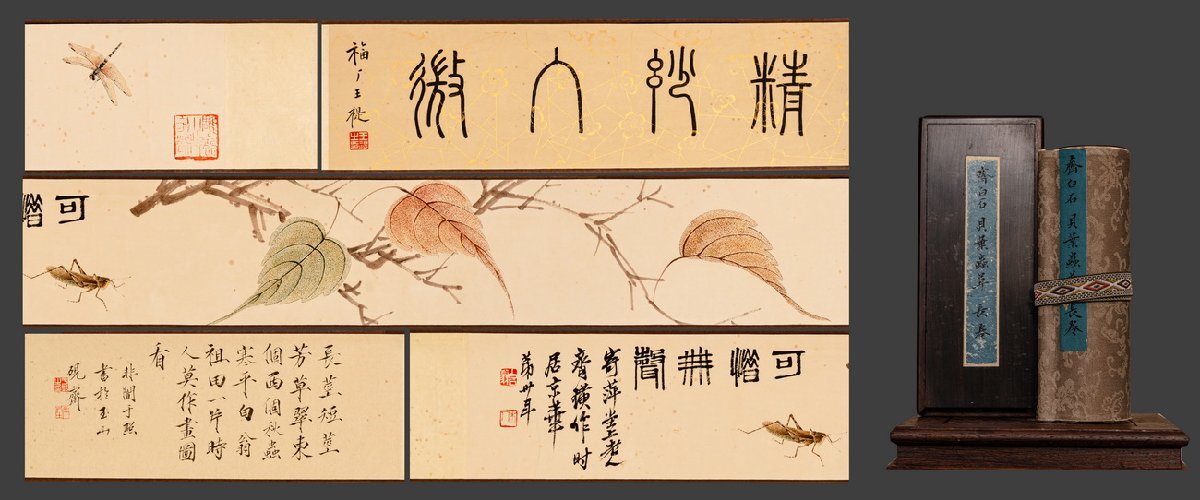 精妙入微
福厂王禔
可惜
可惜無聲
寄萍堂老人
齊璜作時
居京華
第卅年
長莖短莖
芳草翠東
個西個秋蟲
寒平白翁
祖田一片時
人莫作畫圖
看
非闇于照
書於玉山
硯齋
齊白石 貝葉蟲草 長卷
齊白石 貝葉蟲草 長卷